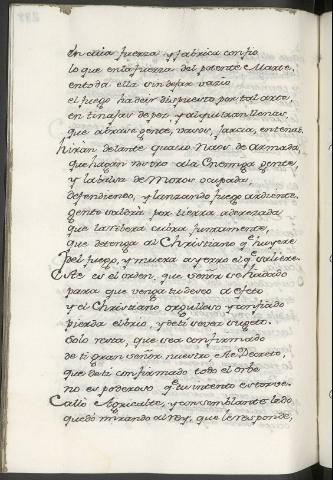 En cuia fuerza y fabrica confio
lo que en la fuerza del potente Marte,
en toda ella sin dejar vazio
el fuego ha de ir dispuesto por tal arte,
en tinajas de pez, y alquitran llenas,
que abrase gente, navos, jarcia, entenas.
Hirán delante quatro Naos de Armada,
que hagan rostro a la Enemiga gente,
y la balsa de Moros ocupada,
defendiendo, y lanzando fuego ardiente.
gente saldrà por tierra aderezada
que la ribera cubra juntamente,
que detenga al Christiano q.e huyere
Del fuego, y muera a yerro el q.e saliere.
Este es el orden, que Señor se ha dado
para que venga tu deseo a efeto
y el Christiano orgulloso y confiado
pierda el brio, y de ti se vea sugeto.
Solo resta, que sea confirmado
de ti gran señor nuestro este Decreto,
que de ti confirmado todo el orbe
no es poderoso q.e tu intento estorve.
Callò Agriculte, y con semblante ledo
quedó mirando al rey, que le responde,